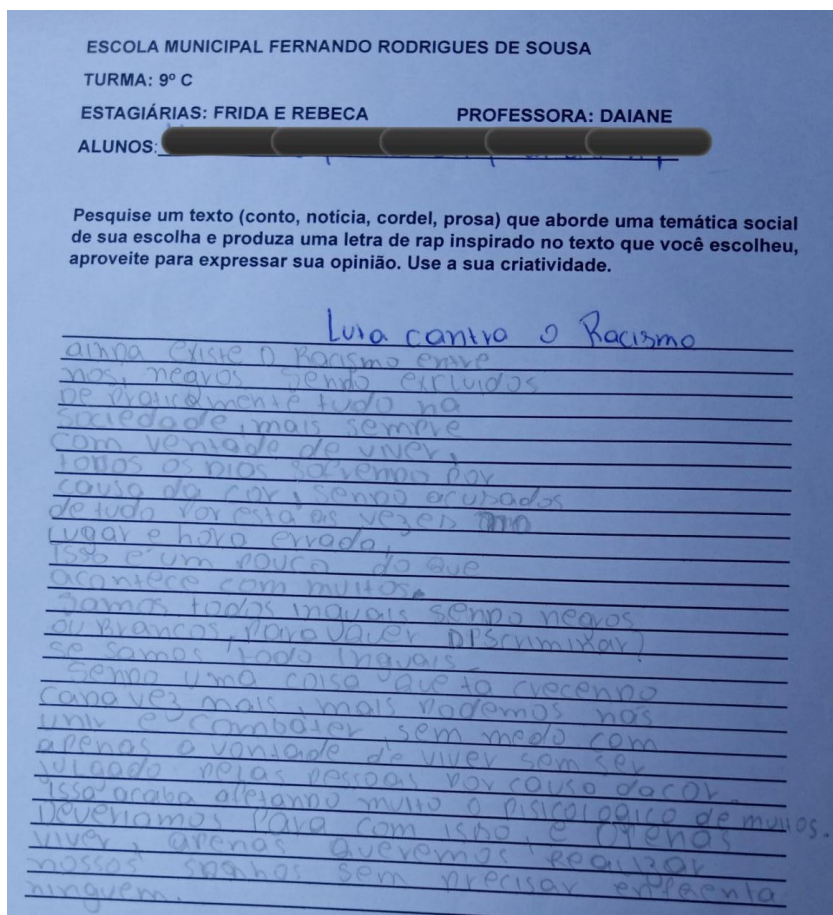 ESCOLA MUNICIPAL FERNANDO RODRIGUES DE SOUSA
TURMA: 9º C
ESTAGIÁRIAS: FRIDA E REBECA PROFESSORA: DAIANE
ALUNOS:
Pesquise um texto (conto, notícia, cordel, prosa) que aborde uma temática social
de sua escolha e produza uma letra de rap inspirado no texto que você escolheu,
aproveite para expressar sua opinião. Use a sua criatividade.
Luta contra o Racismo
ainda existe o Racismo entre
nos, negros sendo excluidos
de praticamente tudo na
sociedade, mais sempre
com ventade de viver,
todos os dias sofrendo por
causa da cor, sendo acusados
de tudo por está as vezes no
lugar e hora errada,
isso é um pouco do que
acontece com muitos.
Somos todos inguais sendo negros
ou Brancos, para que Discriminar?
se somos todo inguais
Sendo uma coisa que ta crecendo
cada vez mais, mais podemos nós
unir e combater, sem medo com
apenas a vontade de viver sem ser
julgado pelas pessoas por causa da cor.
Issa acaba afetando muito o pisicologico de muitos.
Deveriamos Para com isso, e apenas
viver, apenas queremos Realizar
nossos sonhos sem precisar enfrenta
ninguem.